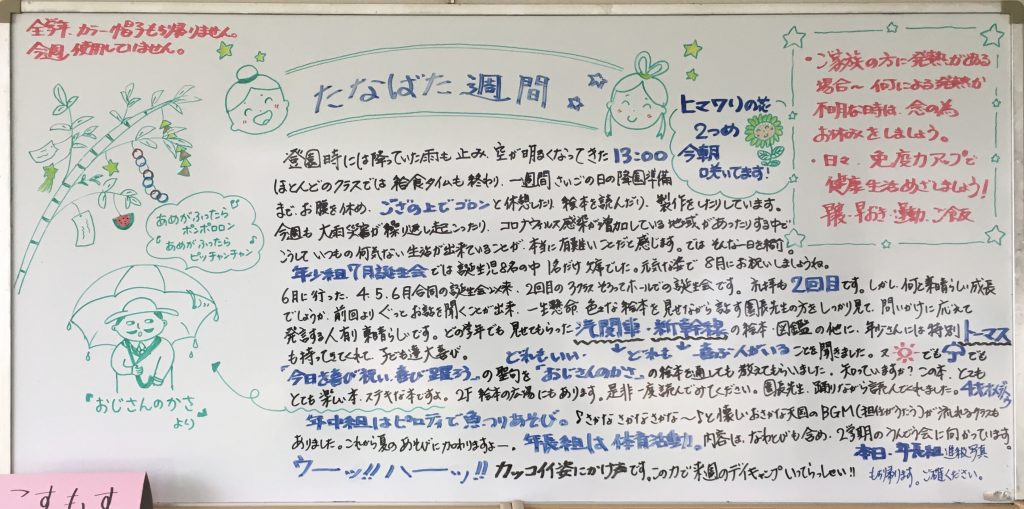 全学年、カラー帽子もち帰りません。
今週使用していません。
たなばた週間
ヒマワリの花
2つめ
今朝
咲いてます!
・ご家族の方に発熱が出る
場合〜何による発熱か
不明な時は、念の為
お休みをしましょう。
・日々、免疫力アップで
健康生活めざしましょう!
早寝・早おき・運動・ご飯
あめがふったら
ポンポロロン
あめがふったら
ピッチャンチャン
"おじさんのかさ"
より
登園時には降っていた雨も止み、空が明るくなってきた13:00
ほとんどのクラスでは給食タイムも終わり、一週間さいごの日の降園準備
まで、お腹を休め、ござの上でゴロンと休憩したり、絵本を読んだり、製作をしたりしています。
今週も大雨災害が繰り返し起こったり、コロナウィルス感染が増加している地域があったりする中で
こうしていつもの何気ない生活が出来ていることが、本当に有難いことだと感じます。では、そんな一日を
年少組7月誕生会では誕生児8名の中1名だけ欠席でした。元気な姿で8月にお祝いしましょうね。
6月に行った、4.5.6月合同の誕生会以来、2回目の3クラスそろってホールでの誕生会です。2回目です。しかし、何と素晴らしい成長
でしょうか、前回よりぐっとお話を聞くことが出来、一生懸命色々な絵本を見せながら話す園長先生の方をしっかり見て、問いかけに応えて
発言する人有り素晴らしいです。どの学年でも見せてもらった汽関車・新幹線の絵本・図鑑の他に、年少さんには特別トーマス
も持ってきてくれて、子ども達大喜び。どれもいい どれも喜ぶ人がいることを聞きました。
「今日を喜び祝い、喜び躍ろう」の聖句を"おじさんのかさ"の絵本を通しても教えてもらいました。知っていますか?この本、とっても
とても楽しい本、ステキな本ですよ。2F絵本の広場にもあります。是非一度読んでみてください。園長先生、踊りながら読んでくれました。
年中組はピロティで魚つりあそび。♪さかなさかなさかな〜♪と懐しいおさかな天国のBGM(担任がうたう)が流れるクラスも
ありました。これから夏のあそびに加わりますよー。年長組は体育活動。内容は、なわとびも含め、2学期のうんどう会に向かっています。
ウーッ!!ハーーッ!!カッコイイ姿にかけ声です。この力で来週のデイキャンプいってらっしゃい!!
本日・年長組進級写真
もち帰ります。ご確ください。
こすもす